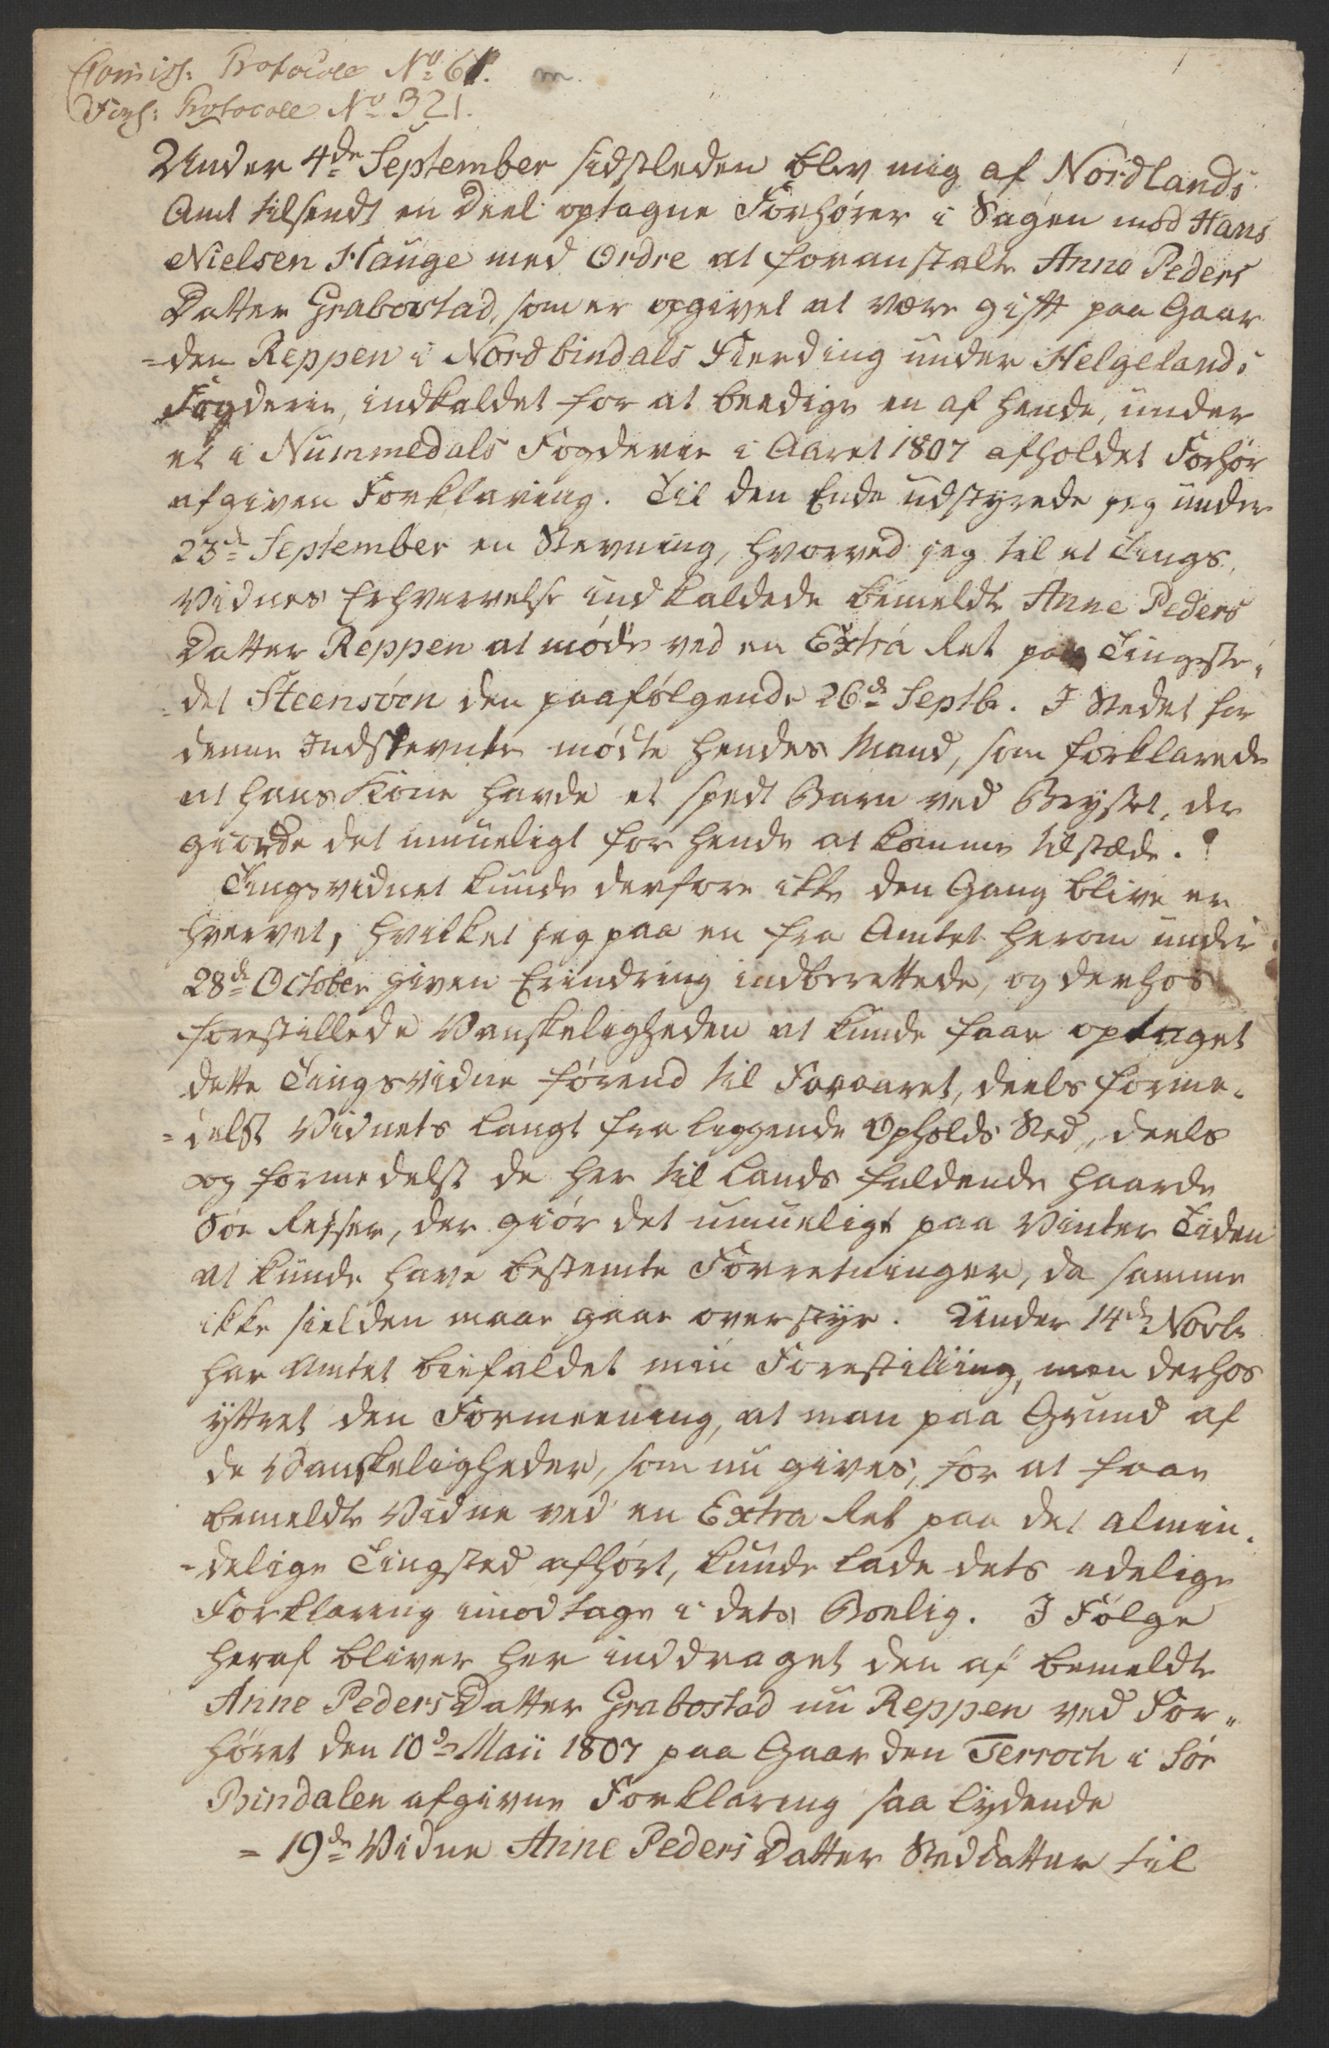 Comiss: Protocole No 61. m.
Forh: Protocole No 321.
Under 4de September sidstleden blev mig af Nordlands
Amt tilsendt en Deel optagne Forhører i Sagen mod Hans
Nielsen Hauge med Ordre at foranstalte Anne Peders
Datter Grabostad, som er opgivet at være gift paa Gaar
=den Reppen i Nordbindals Fierding under Helgelands
Fogderie, indkaldet for at beedige en af hende, under
et i Nummedals Fogderie i Aaret 1807 afholdet Forhør
afgiven Forklaring. Til den Ende udstyrede jeg under
23de September en Stevning, hvorved jeg til et Tings
Vidnes Erhvervelse indkaldede bemeldte Anne Peders
Datter Reppen at møde ved en Extra Ret paa Tingste-
=det Steensøen den paafølgende 26de Septbr. I Stedet for
denne Indstevnte mødte hendes Mand, som forklarede
at hans Kone havde et spedt Barn ved Brystet, der
giorde det umueligt for hende at komme tilstæde.
Tingsvidnet kunde derfore ikke den Gang blive er
hvervet, hvilket jeg paa en fra Amtet herom under
28de October given Erindring indberettede, og derhos
forestillede Vanskeligheden at kunde faae optaget
dette Tingsvidne førend til Foraaret, deels forme-
=delst Vidnets langt fra liggende Opholds Sted, deels
og formedelst de her til Lands faldende haarde
Søe Reiser, der giør det umueligt paa Vinter Tiden
at kunde have bestemte Forretninger, da samme
ikke sielden maae gaae overstyr. Under 14de Novbr
har Amtet biefaldet min Forestilling, men derhos
yttret den Formeening, at man paa Grund af
de Vanskeligheder, som nu gives, for at faae
bemeldte Vidne ved en Extra Ret paa det almin-
=delige Tingsted afhørt, kunde lade dets edelige
Forklaring imodtage i dets Boelig. I Følge
heraf bliver her inddraget den af bemeldte
Anne Peders Datter Grabostad nu Reppen ved For-
høret den 10de Maii 1807 paa Gaarden Terroch i Sør
Bindalen afgivne Forklaring saa lydende
= 19de Vidne Anne Peders Datter Steddatter til